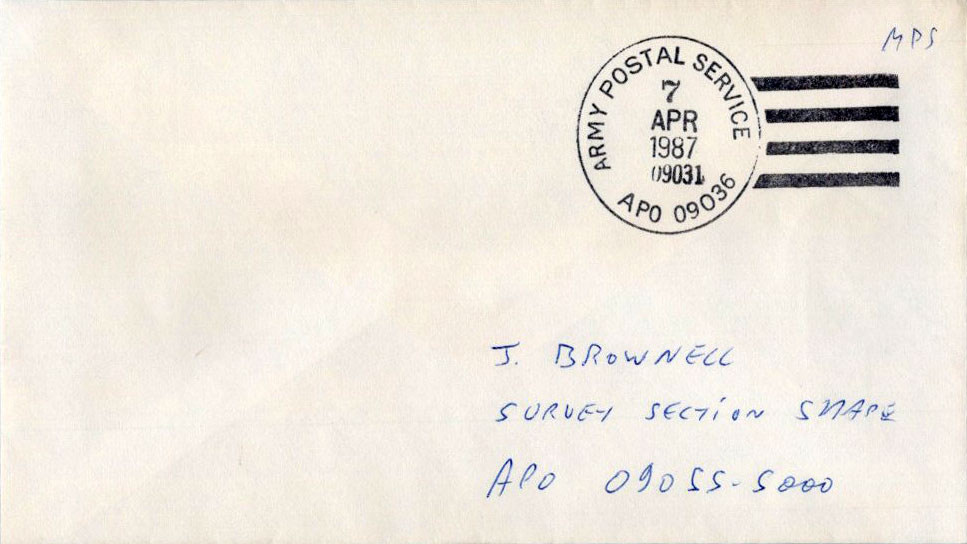 MPS
ARMY POSTAL SERVICE
7
APR
1987
09031
APO 09036
J. BROWNELL
SURVEY SECTION SHAPE
APO 09055-5000